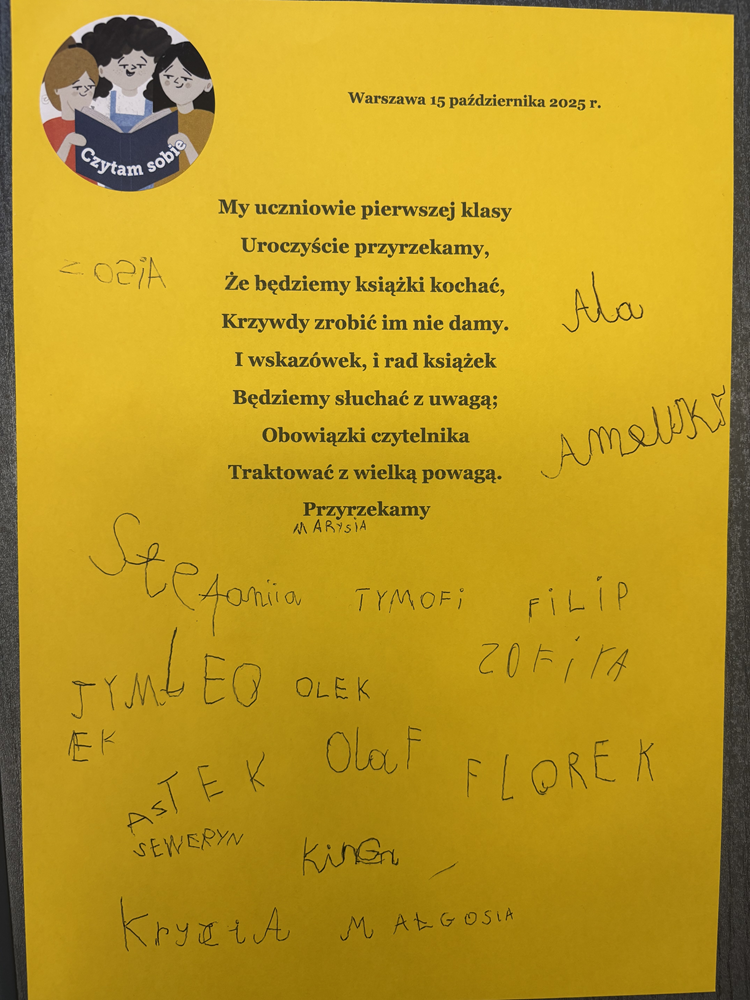 Czytam sobie
Warszawa 15 października 2025 r.
My uczniowie pierwszej klasy
Uroczyście przyrzekamy,
Że będziemy książki kochać,
Krzywdy zrobić im nie damy.
I wskazówek, i rad książek
Będziemy słuchać z uwagą;
Obowiązki czytelnika
Traktować z wielką powagą.
Przyrzekamy
ZOSIA
Ala
MARYSIA
Stefaniia TYMOFi FiLiP
TYM LEO OLEK
EK
Olaf FLOREK
AsTEK
SEWERYN
KinGa
MAŁGOSIA